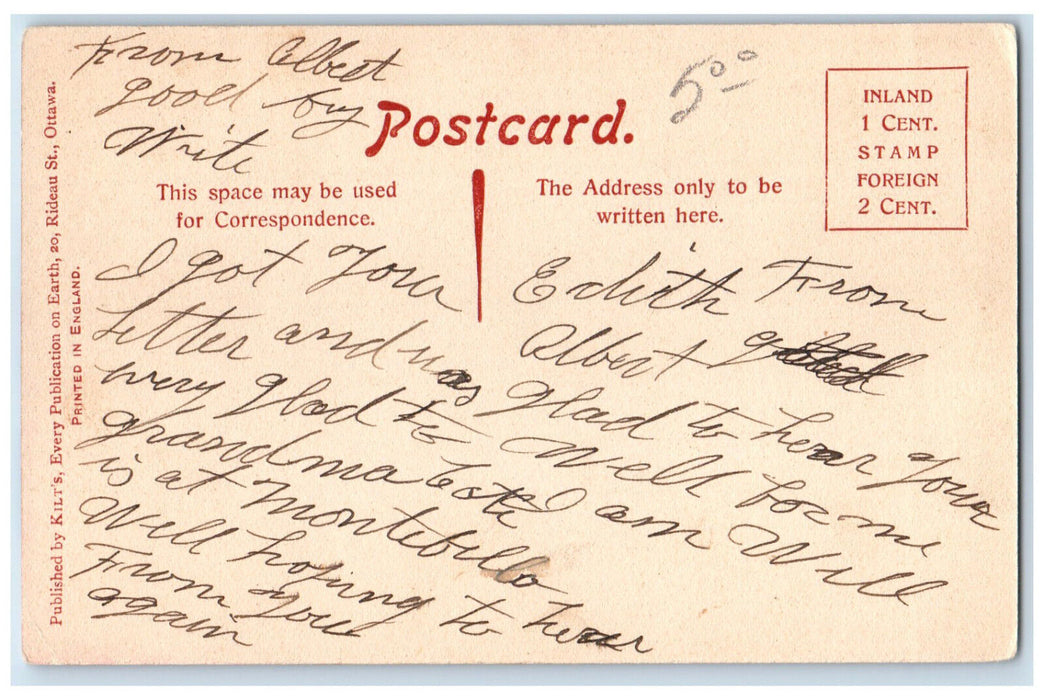 From Albert
good by
Write
5.00
Postcard.
INLAND
1 CENT.
STAMP
FOREIGN
2 CENT.
This space may be used
for Correspondence.
The Address only to be
written here.
Published by KILT'S, Every Publication on Earth, 20, Rideau St., Ottawa.
PRINTED IN ENGLAND.
Edith From
Albert
I got your
letter and was glad to hear your
very glad to well for me
grandma I am Will
is at Montebello
Well hoping to hear
From you
again